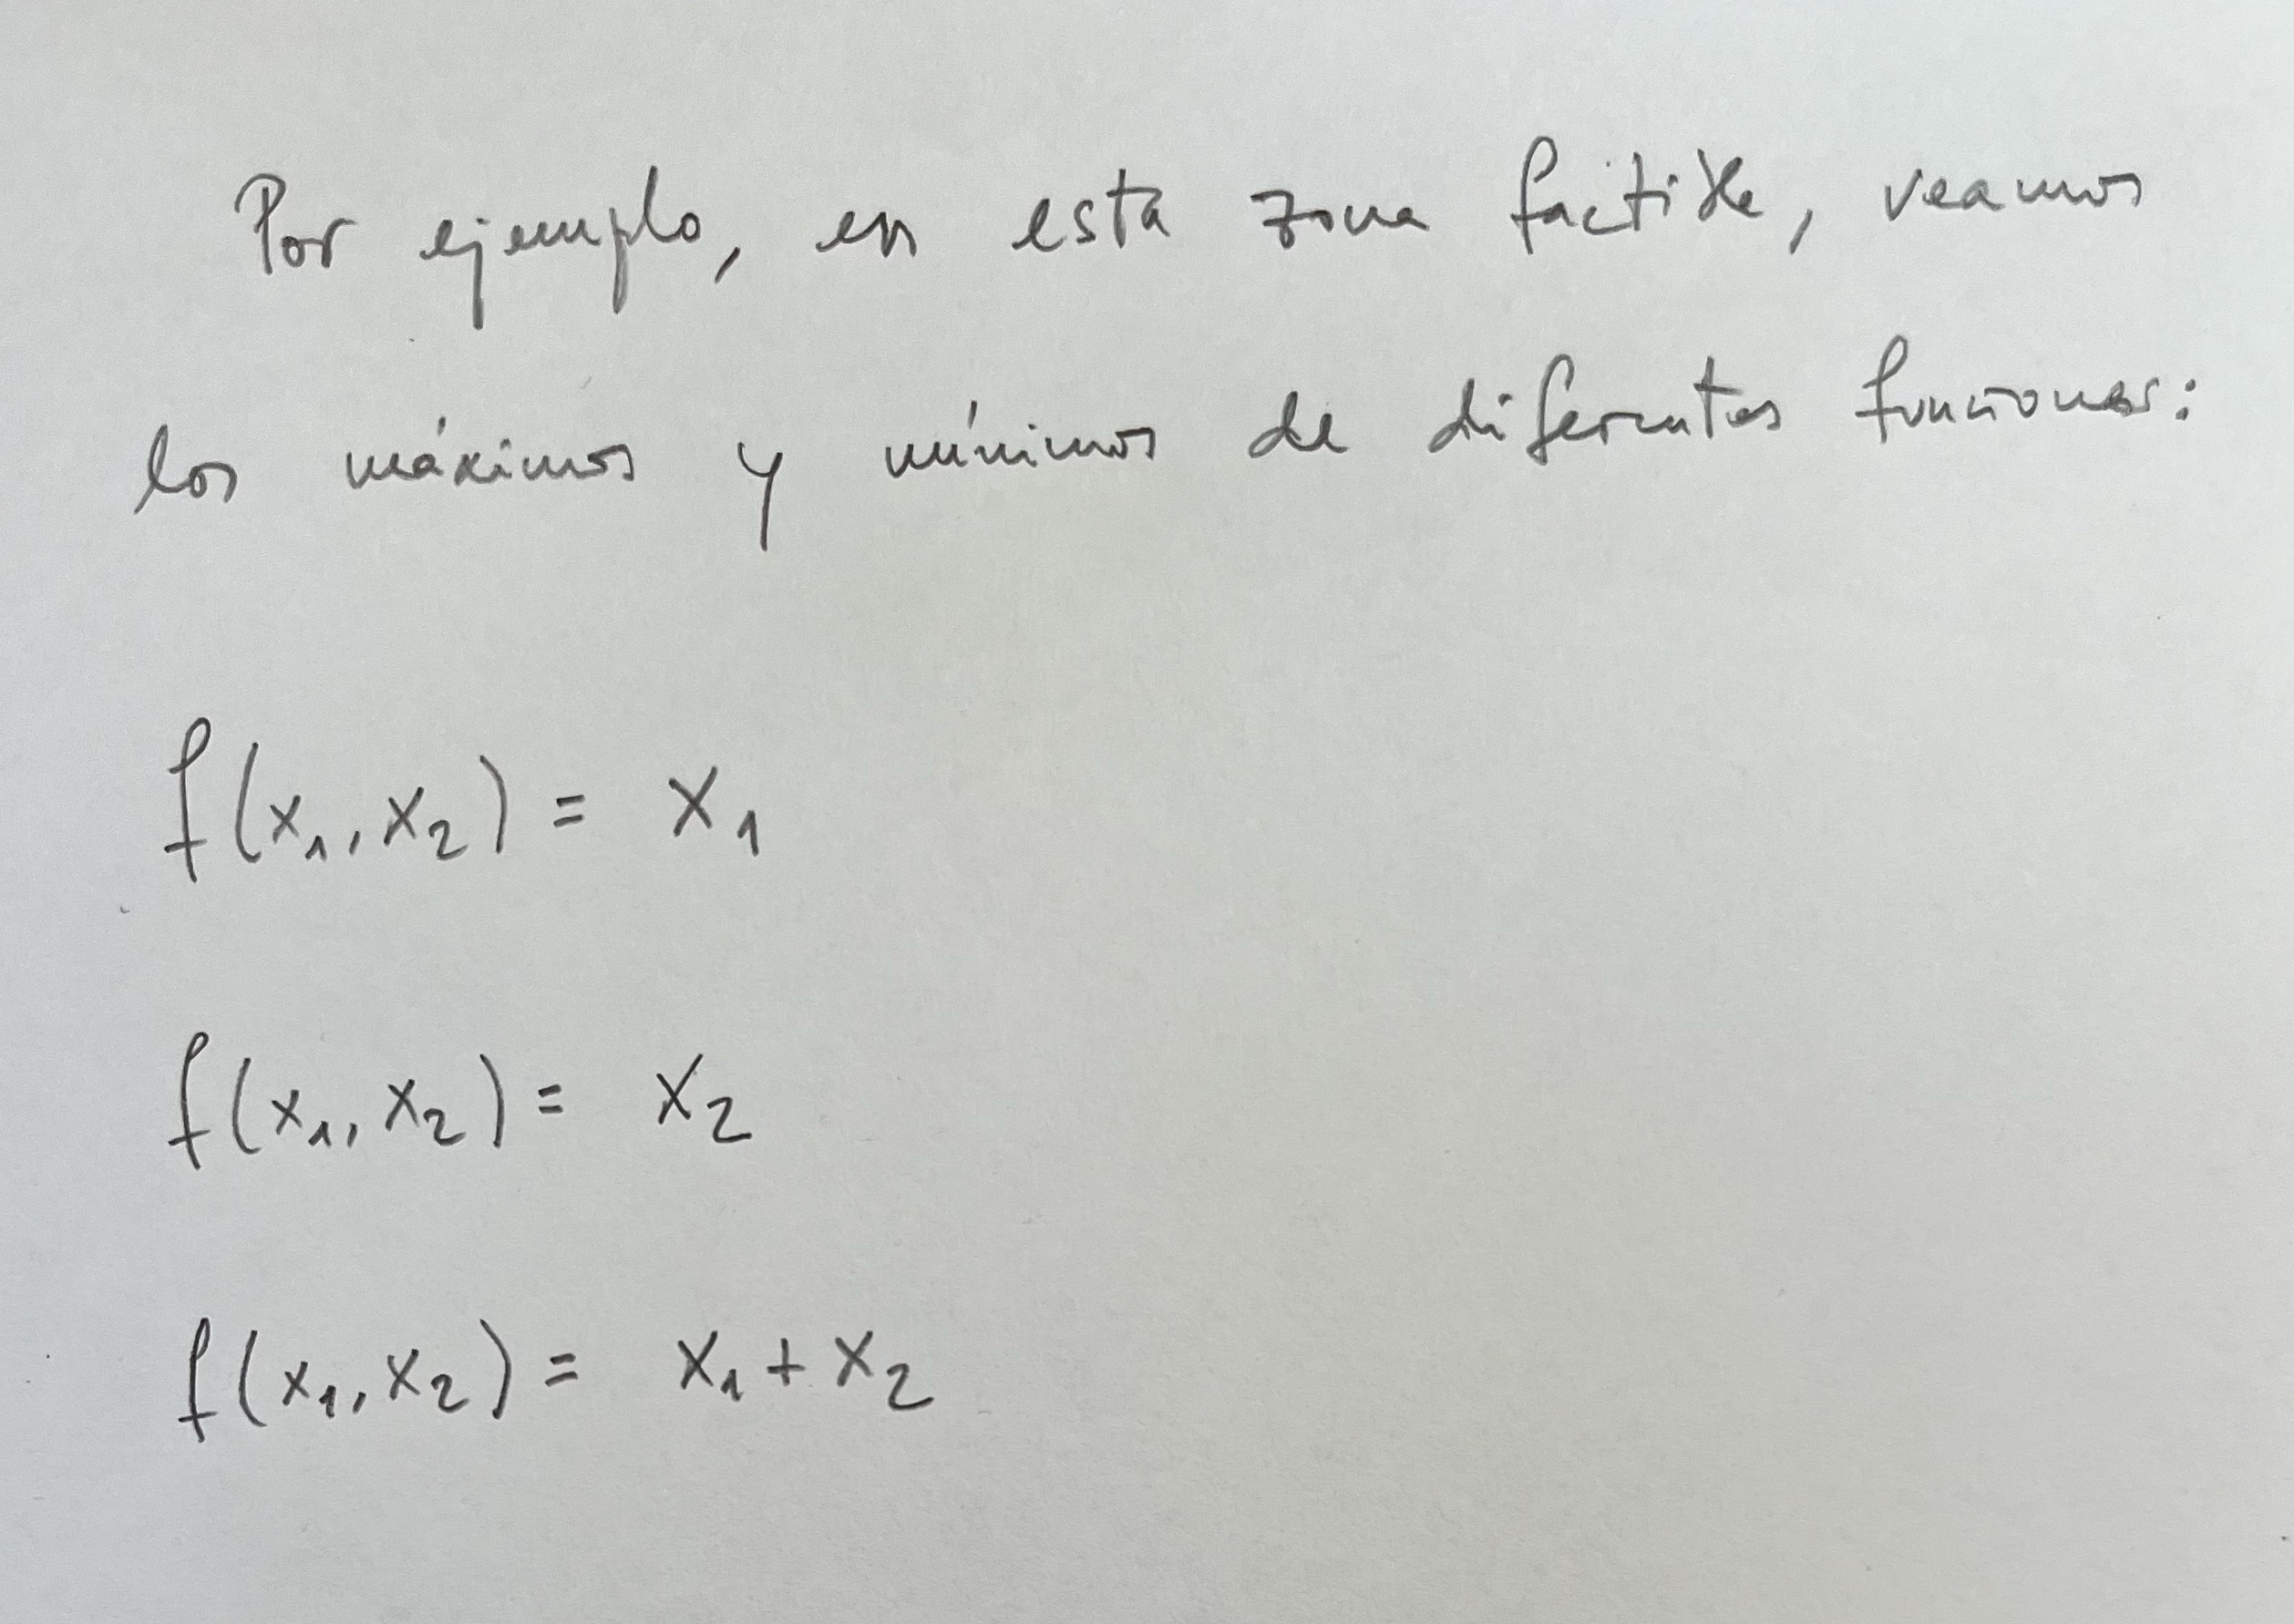 Por ejemplo, en esta zona factible, veamos
los máximos y mínimos de diferentes funciones:
f(x₁, x₂) = x₁
f(x₁, x₂) = x₂
f(x₁, x₂) = x₁ + x₂